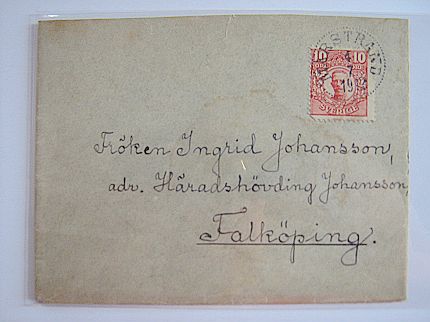 10 10
SVERIGE
19
Fröken Ingrid Johansson,
adr. Häradshövding Johansson,
Falköping.